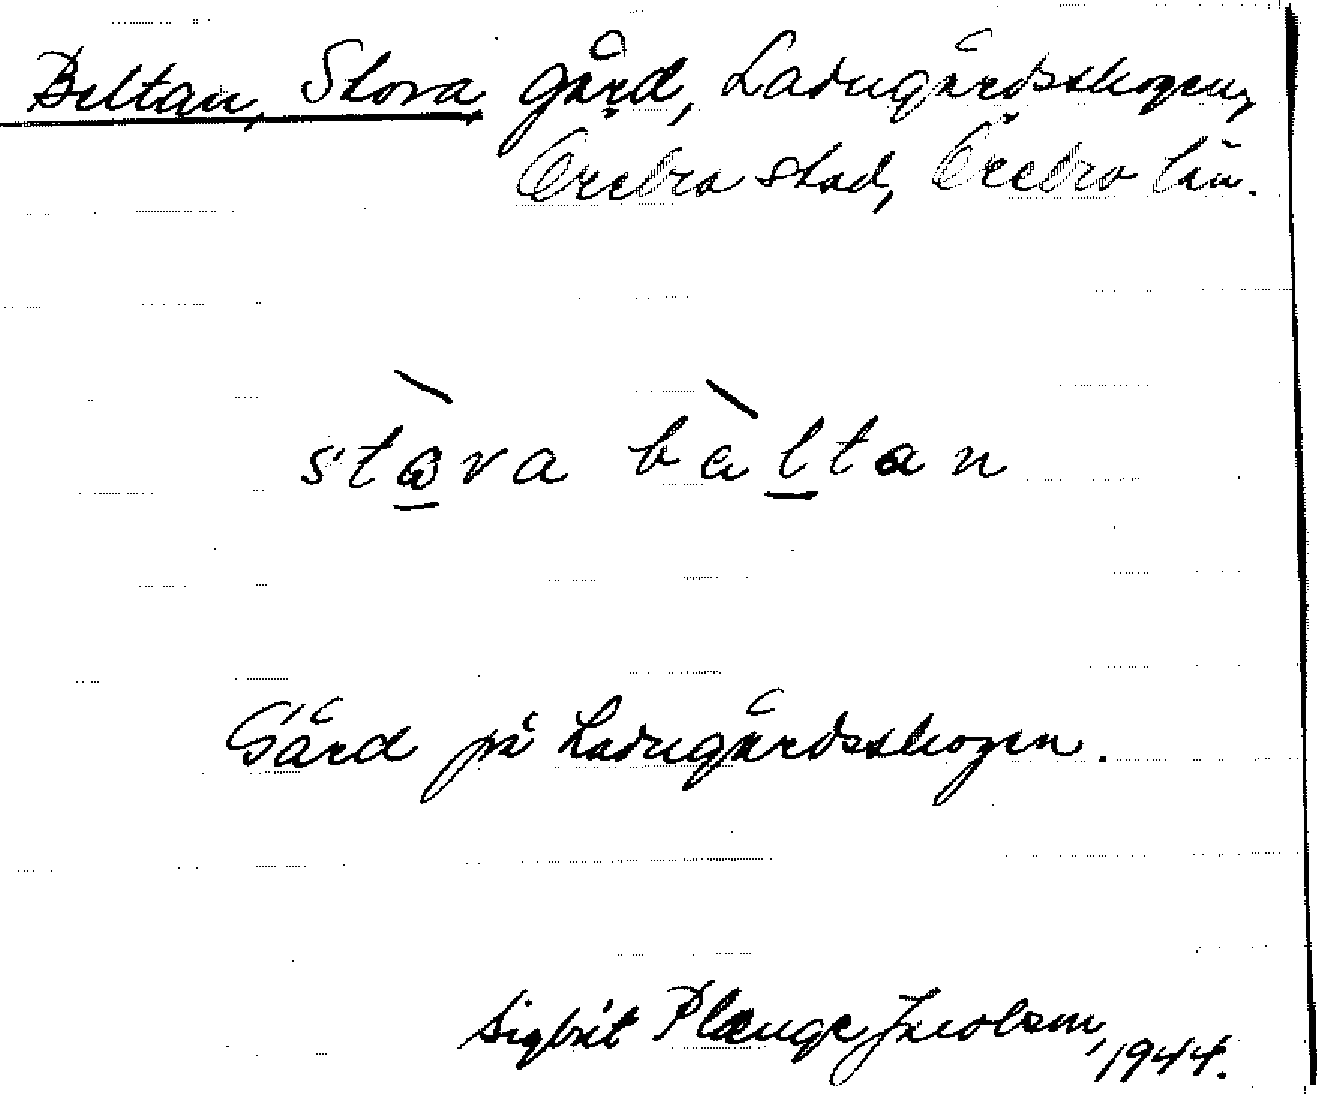 Beltan, Stora gård, Ladugårdsskogen,
Örebro stad, Örebro län.
stòra bèltan
Gård på Ladugårdsskogen.
Sigbrit Plænge Jacobson, 1944.